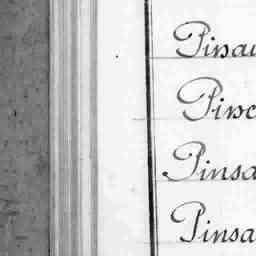 Pinau
Pinc
Pinsa
Pinsa